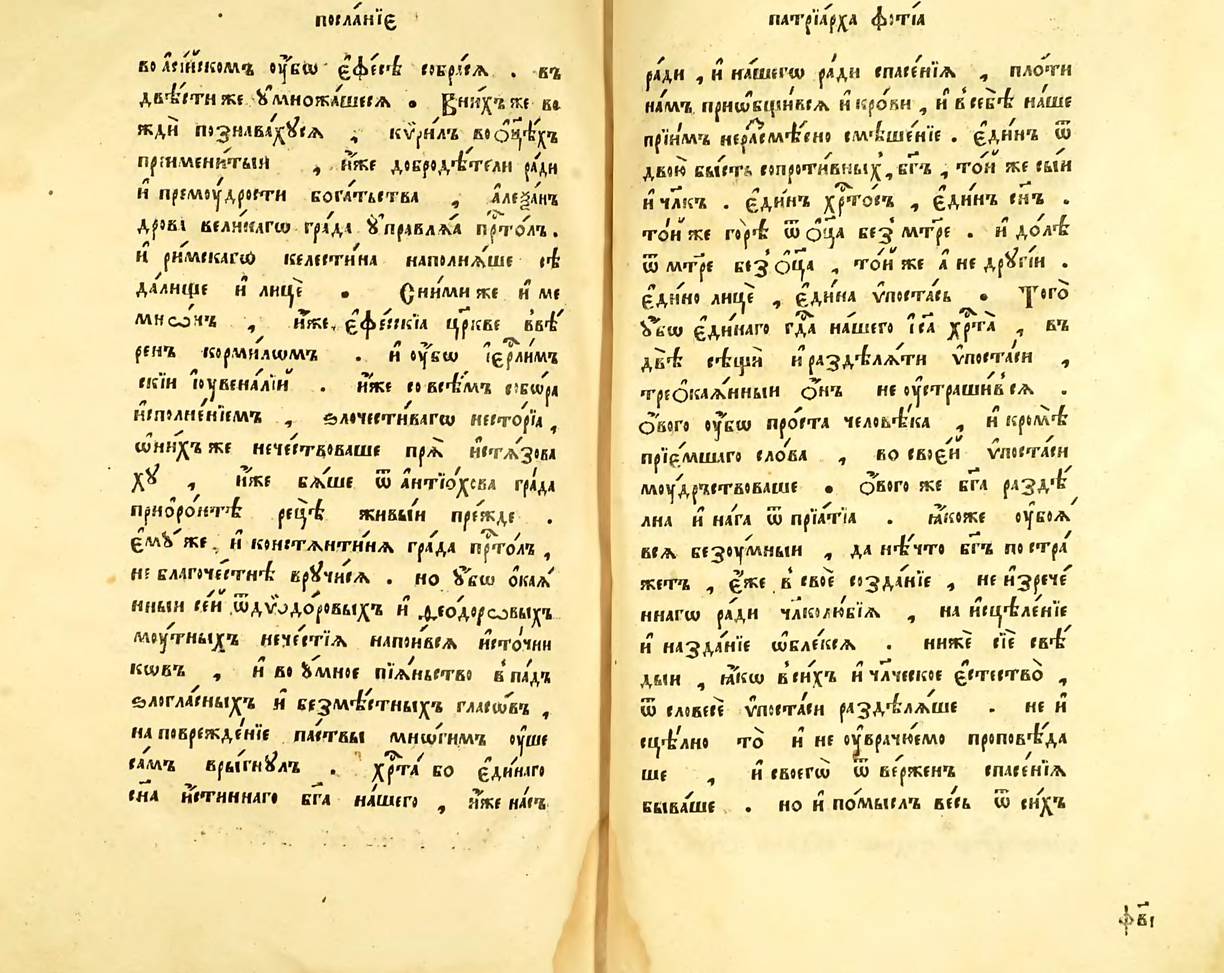 посла́нїе
во а҆сі́йскомъ ᲂу҆́бѡ є҆фе́сѣ собра́сѧ . въ
двѣ́сти же ᲂу҆множа́шесѧ . Вни́хъ же во
ждѝ познава́хꙋсѧ , кѷри́лъ во ѻ҆ц҃ѣхъ
примени́тый , и҆́же добродѣ́тели ра́ди
и҆ премоу́дрости бога́тьства , а҆леѯа́н
дрова вели́кагѡ гра́да ᲂу҆правлѧ́ѧ прⷭ҇то́лъ .
и҆ ри́мскагѡ келести́на наполнѧ́ше сѣ
да́лище и҆ лицѐ . Сни́ми же и҆ ме
мнѡ́нъ , и҆́же є҆фе́сскїѧ цр҃кве ввѣ́
ренъ корми́лѡмъ . и҆ ᲂу҆́бѡ і҆ерⷭ҇ли́м
скїи і҆оувена́лїй . и҆́же со всѣ́мъ собѡ́ра
и҆сполне́нїемъ , ѕлочести́вагѡ несто́рїа ,
ѡ҆ни́хъ же нече́ствоваше прѧ̀ и҆стѧ́зова
хꙋ̀ , и҆́же бѧ́ше ѿ а҆нтїо́хова гра́да
приѻ҆ро́нтѣ рещѐ живы́и пре́жде .
є҆мꙋ́ же , и҆ констѧнти́нѧ гра́да прⷭ҇то́лъ ,
не благоче́стнѣ врꙋчи́сѧ . но ᲂу҆́бѡ ѻ҆каѧ́
нныи се́й ѿ дїѡдо́ровыхъ и҆ ѳео́дорѡвыхъ
моу́тныхъ нече́стїѧ напои́всѧ и҆сто́чни
кѡвъ , и҆ во ᲂу҆́мное пїѧ́ньство впа́дъ
ѕлогла́сныхъ и҆ безмѣ́стныхъ гласѡ́въ ,
на поврежде́нїе па́ствы мнѡ́гимъ ᲂу҆ше
са́мъ вры́гнꙋлъ . хрⷭ҇та́ бо є҆ди́наго
сн҃а и҆́стиннаго бг҃а на́шего , и҆́же на́съ
патрїа́рха фѡ́тїа
ра́ди , и҆ на́шегѡ ра́ди спасе́нїѧ , пло́ти
на́мъ приѡ҆бщи́всѧ и҆ кро́ви , и҆ в себѣ̀ на́ше
прїи́мъ неразмѣ́сно смѣше́нїе . є҆ди́нъ ѿ
двою̀ бы́сть сопроти́вных , бг҃ъ , то́й же сы́и
и҆ чл҃къ . є҆ди́нъ хрⷭ҇то́съ , є҆ди́нъ сн҃ъ .
то́й же горѣ̀ ѿ ѻ҆ц҃а без мт҃ре . и҆ до́лѣ
ѿ мт҃ре без ѻ҆ц҃а , то́й же а҆ не дрꙋгі́й .
є҆ди́но лицѐ , є҆ди́на ѵ҆поста́сь . Того̀
ᲂу҆́бѡ є҆ди́наго гдⷭ҇а на́шего і҆с҃а хрⷭ҇та̀ , въ
двѣ̀ сѣщѝ и҆ раздѣлѧ́ти ѵ҆поста́си ,
треѻ҆каѧ́нныи ѻ҆́нъ не ᲂу҆страши́всѧ .
ѻ҆́вого ᲂу҆́бѡ про́ста человѣ́ка , и҆ кромѣ̀
прїе́мшаго сло́ва , во свое́й ѵ҆поста́си
моу́дръствоваше . ѻ҆́вого же бг҃а раздѣ́
лна и҆ на́га ѿ прїѧ́тїа . ꙗ҆́коже ᲂу҆боѧ́
всѧ безоу́мныи , да нѣ́что бг҃ъ постра́
жетъ , є҆́же в своѐ созда́нїе , не и҆зрече́
ннагѡ ра́ди чл҃колю́бїѧ , на и҆сцѣле́нїе
и҆ назда́нїе ѡ҆блеке́сѧ . нижѐ сїѐ свѣ́
дыи , ꙗ҆́кѡ в си́хъ и҆ чл҃ческое є҆стество̀ ,
ѿ словесѐ ѵ҆поста́си раздѣлѧ́ше . не и҆
сцѣ́лно то̀ и҆ не ᲂу҆врачю́емо проповѣ́да
ше , и҆ своегѡ̀ ѿ ве́рженъ спасе́нїѧ
быва́ше . но и҆ по́мыслъ ве́сь ѿ си́хъ
фв҃і